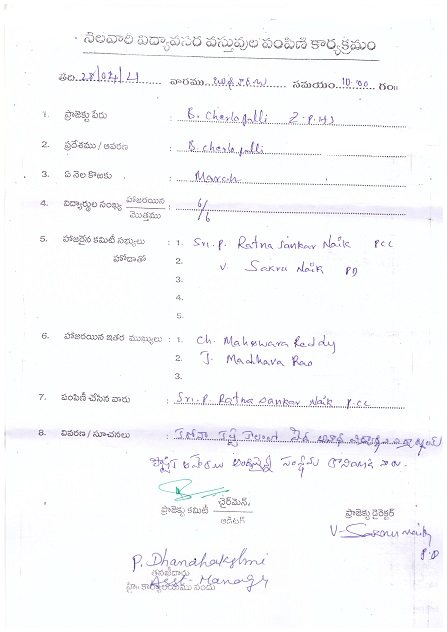 నెలవారి విద్యావసర వస్తువుల పంపిణి కార్యక్రమం
తేది. 28/04/21 వారము సమయం 10.00 గం॥
1. ప్రాజెక్టు పేరు : B. Cherlapalli Z.P.H.S
2. ప్రదేశము / ఆవరణ : B. cherlapalli
3. ఏ నెల కొఱకు : March
4. విద్యార్థుల సంఖ్య హాజరయిన / మొత్తము : 6/6
5. హాజరైన కమిటీ సభ్యులు : 1. Sri. P. Ratna Sankar Naik PCC
హోదాతో 2. V. Sakru Naik PD
3.
4.
5.
6. హాజరయిన ఇతర ముఖ్యులు : 1. Ch. Maheswara Reddy
2. J. Madhava Rao
3.
7. పంపిణీ చేసిన వారు : Sri. P. Ratna Sankar Naik P.CC
8. వివరణ / సూచనలు :
ప్రాజెక్టు కమిటీ చైర్‌మెన్, / ఆడిటర్
ప్రాజెక్టు డైరెక్టర్
V. Sakru Naik
P.D
P. Dhanalakshmi
Asst. Manager